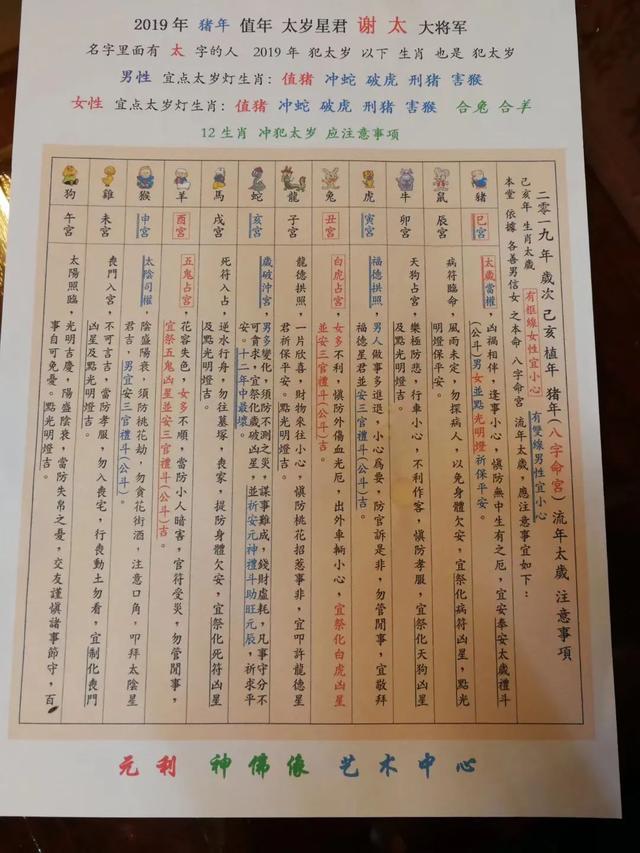 2019年 猪年 值年 太岁星君 谢太 大将军
名字里面有 太 字的人 2019年 犯太岁 以下 生肖 也是 犯太岁
男性 宜点太岁灯生肖: 值猪 冲蛇 破虎 刑猪 害猴
女性 宜点太岁灯生肖: 值猪 冲蛇 破虎 刑猪 害猴 合兔 合羊
12生肖 冲犯太岁 应注意事项
二零一九年 歲次 己亥 植年 猪年(八字命宮) 流年太歲 注意事項
己亥年 生肖太歲 有框線女性宜小心 有雙線男性宜小心
本堂 依據 各善男信女 之本命 八字命宮 流年太歲,應注意事宜如下:
猪
巳宮
太歲當權,凶禍相伴,逢事小心,慎防無中生有之厄,宜安奉安太歲禮斗
(公斗)男女並點光明燈祈保平安。
鼠
辰宮
病符臨命,風雨未定,勿探病人,以免身體欠安,宜祭化病符凶星,點光
明燈保平安。
牛
卯宮
天狗占宮,樂極防悲,行車小心,不利作客,慎防孝服,宜祭化天狗凶星
及點光明燈吉。
虎
寅宮
福德拱照,男人做事多進退,小心為要,防官訴是非,勿管閒事,宜敬拜
福德星君並安三官禮斗(公斗)吉。
兔
丑宮
白虎占宮,女多不利,慎防外傷血光厄,出外車輛小心,宜祭化白虎凶星
並安三官禮斗(公斗)吉。
龍
子宮
龍德拱照,一片欣喜,財物來往小心,慎防桃花招惹事非,宜叩許龍德星
君祈保平安。
蛇
亥宮
歲破沖宮,男多變化,須防不測之災,謀事難成,錢財虛耗,凡事守分不
可貪求,宜祭化歲破凶星,並祈安元神禮斗助旺元辰,祈求平
安。十二年中最壞。
馬
戌宮
死符入占,逆水行舟,勿往墓塚,喪家,提防身體欠安,宜祭化死符凶星
及點光明燈吉。
羊
酉宮
五鬼占宮,花容失色,女多不順,當防小人暗害,官符受災,勿管閒事,
宜祭五鬼凶星並安三官禮斗(公斗)吉。
猴
申宮
太陰司權,陰盛陽衰,須防桃花劫,勿貪花街酒,注意口角,叩拜太陰星
君吉,男宜安三官禮斗(公斗)。
雞
未宮
喪門入宮,不可言吉,當防孝服,勿入喪宅,行喪動土勿看,宜制化喪門
凶星及點光明燈吉。
狗
午宮
太陽照臨,光明吉慶,陽盛陰衰,當防失帛之憂,交友謹慎諸事節守,百
事自可免憂。點光明燈吉。
元利 神佛像 艺术中心